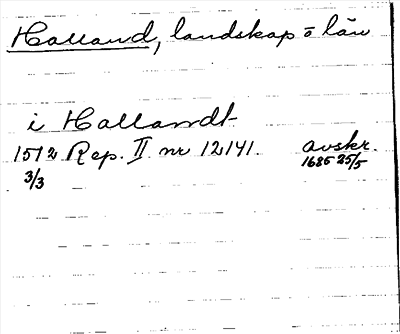 Halland, landskap o län
i Hallandt
1512 Rep. II nr 12141. avskr.
3/3 1685 25/5